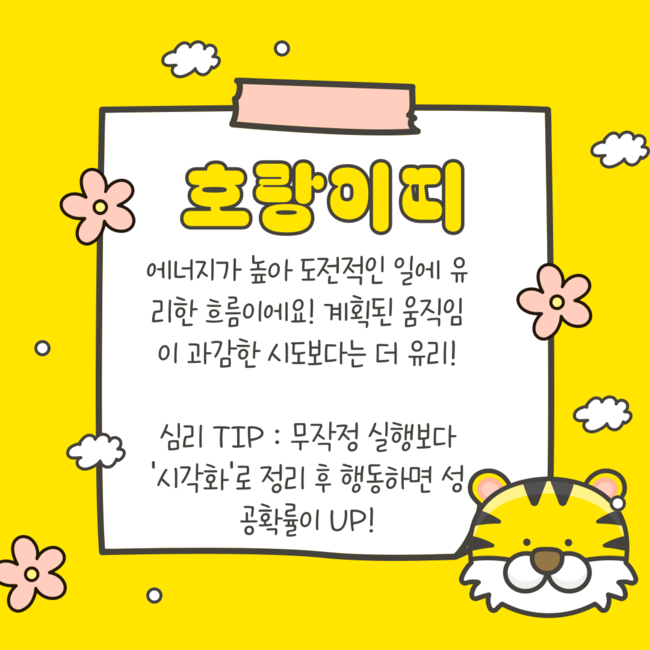 호랑이띠
에너지가 높아 도전적인 일에 유
리한 흐름이에요! 계획된 움직임
이 과감한 시도보다는 더 유리!
심리 TIP : 무작정 실행보다
'시각화'로 정리 후 행동하면 성
공확률이 UP!